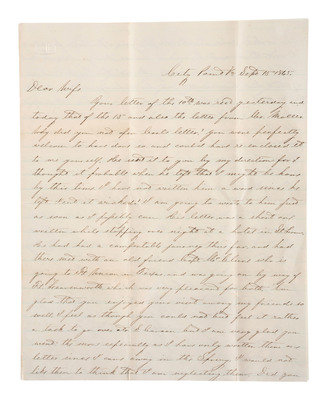 City Point Va Sept 15 1865.
Dear Wife
Your letter of the 10th was recd yesterday and
today that of the 12 and also the letter from Mr
Why did you not letter? you were perfectly
welcome to have done so and could have re-enclosed it
to me yourself. He sent it to you by my direction for I
thought it probable when he left that I might be home
by this time. I have not written him a word since he
left. And it I am going to write to him just
as soon as I possibly can. His letter was a short one
written while stopping over night at a hotel in St Louis
He had had a comfortable journey thus far and had
there met with an old friend who is
going to and was going on by way of
Ft. Leavenworth which was very pleasant for both. I am
glad that you enjoyed your visit among my friends so
well. I feel as though you could not but feel it rather
a task to go and I am very glad you
went the more especially as I have only written them one
letter since I came away in the Spring. I would not
like them to think that I am neglecting them. Did you